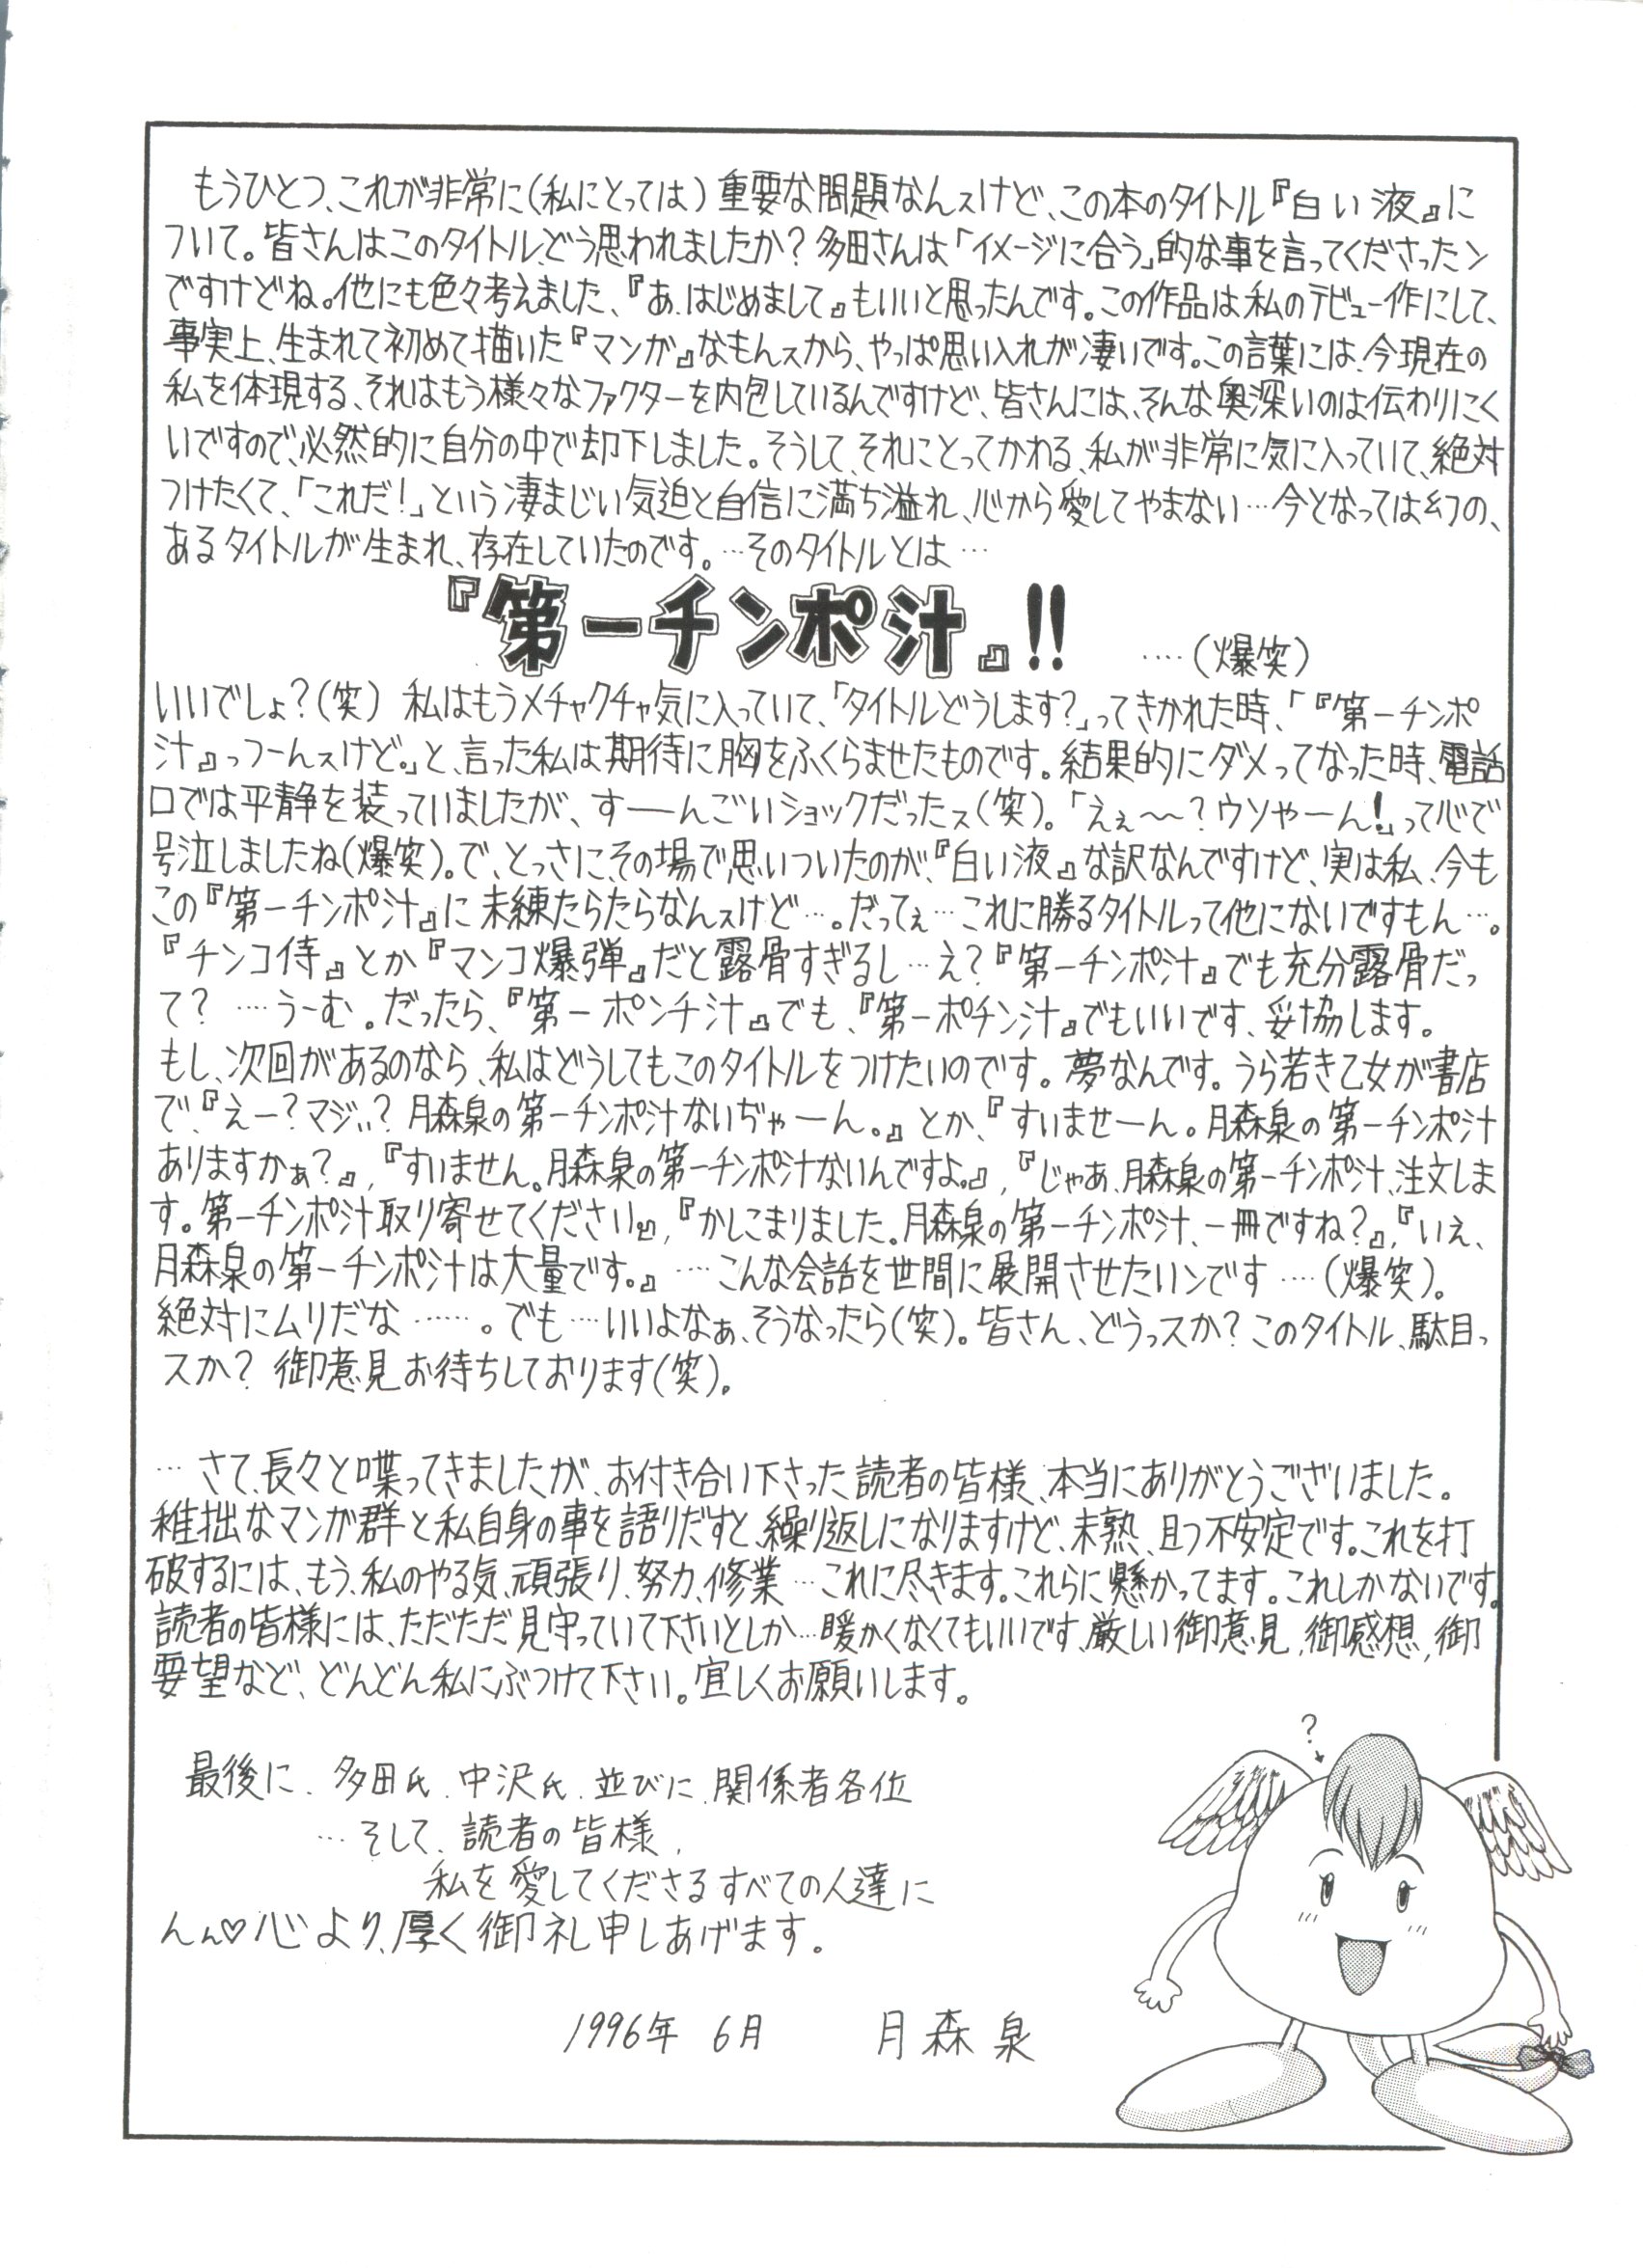 もうひとつ、これが非常に(私にとっては)重要な問題なんスけど、この本のタイトル『白い液』に
ついて。皆さんはこのタイトル、どう思われましたか?多田さんは「イメージに合う」的な事を言ってくださったン
ですけどね。他にも色々考えました、『あ、はじめまして』もいいと思ったんです。この作品は私のデビュー作にして、
事実上、生まれて初めて描いた『マンガ』なもんスから、やっぱ思い入れが凄いです。この言葉には、今現在の
私を体現する、それはもう様々なファクターを内包しているんですけど、皆さんには、そんな奥深いのは伝わりにく
いですので、必然的に自分の中で却下しました。そうして、それにとってかわる、私が非常に気に入っていて、絶対
つけたくて、「これだ!」という凄まじい気迫と自信に満ち溢れ、心から愛してやまない…今となっては幻の、
あるタイトルが生まれ、存在していたのです。…そのタイトルとは…
『第一チンポ汁』!! ‥‥(爆笑)
いいでしょ?(笑) 私はもうメチャクチャ気に入っていて、「タイトルどうします?」ってきかれた時、「『第一チンポ
汁』っつーんスけど。」と、言った私は期待に胸をふくらませたものです。結果的にダメってなった時、電話
口では平静を装っていましたが、すーーんごいショックだったス(笑)。「えぇ〜〜?ウソやーん!」って心で
号泣しましたね(爆笑)。で、とっさに、その場で思いついたのが、『白い液』な訳なんですけど、実は私、今も
この『第一チンポ汁』に未練たらたらなんスけど…。だってぇ…これに勝るタイトルって他にないですもん…。
『チンコ侍』とか『マンコ爆弾』だと露骨すぎるし…え?『第一チンポ汁』でも充分露骨だっ
て? ‥‥うーむ。だったら、『第一ポンチ汁』でも、『第一ポチン汁』でもいいです、妥協します。
もし、次回があるのなら、私はどうしてもこのタイトルをつけたいのです。夢なんです。うら若き乙女が書店
で、『えー?マジぃ?月森泉の第一チンポ汁ないぢゃーん。』とか、『すいませーん。月森泉の第一チンポ汁
ありますかぁ?』,『すいません。月森泉の第一チンポ汁ないんですよ。』,『じゃあ、月森泉の第一チンポ汁、注文しま
す。第一チンポ汁取り寄せてください。』,『かしこまりました。月森泉の第一チンポ汁、一冊ですね?』,『いえ、
月森泉の第一チンポ汁は大量です。』‥‥こんな会話を世間に展開させたいンです‥‥(爆笑)。
絶対にムリだな……。でも…いいよなぁ、そうなったら(笑)。皆さん、どうっスか?このタイトル、駄目っ
スか? 御意見お待ちしております(笑)。
…さて、長々と喋ってきましたが、お付き合い下さった読者の皆様、本当にありがとうございました。
稚拙なマンガ群と私自身の事を語りだすと、繰り返しになりますけど、未熟、且つ不安定です。これを打
破するには、もう、私のやる気、頑張り、努力、修業…これに尽きます。これらに懸かってます。これしかないです。
読者の皆様には、ただただ見守っていて下さいとしか…暖かくなくてもいいです、厳しい御意見,御感想,御
要望など、どんどん私にぶつけて下さい。宜しくお願いします。
最後に、多田氏、中沢氏、並びに、関係者各位
…そして、読者の皆様,
私を愛してくださるすべての人達に
んん♡心より、厚く御礼申しあげます。
1996年 6月 月森泉
?